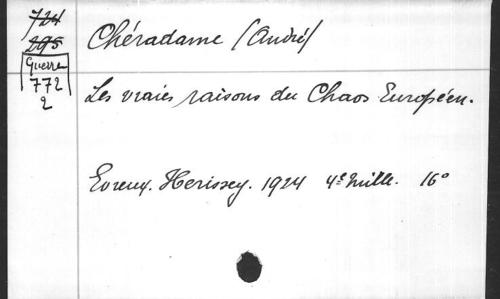 724
295
Guerre
772
2
Chéradame (André)
Les vraies raisons du Chaos Européen.
Evreux. Herissey. 1924 4e mille. 16°